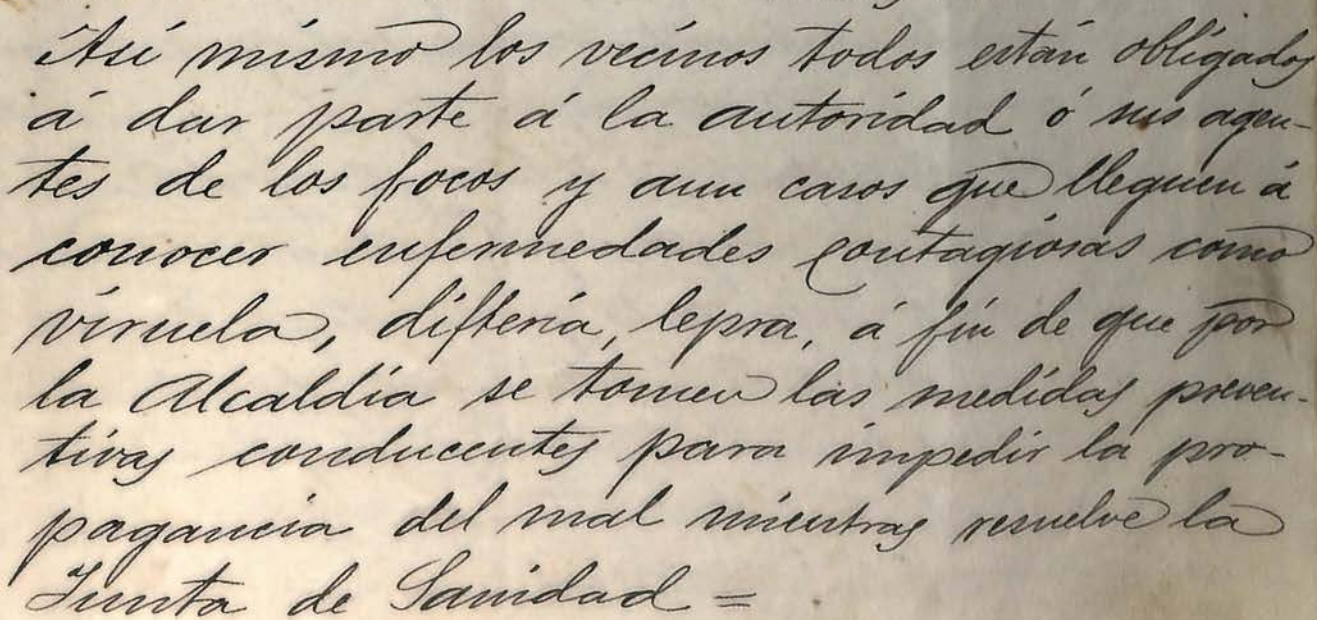 Así mismo los vecinos todos están obligados
á dar parte á la autoridad ó sus agen-
tes de los focos y aun casos que lleguen á
conocer enfermedades contagiosas como
viruela, difteria, lepra, á fin de que por
la Alcaldia se tomen las medidas preven-
tivas conducentes para impedir la pro-
pagancia del mal mientras resuelve la
Junta de Sanidad =